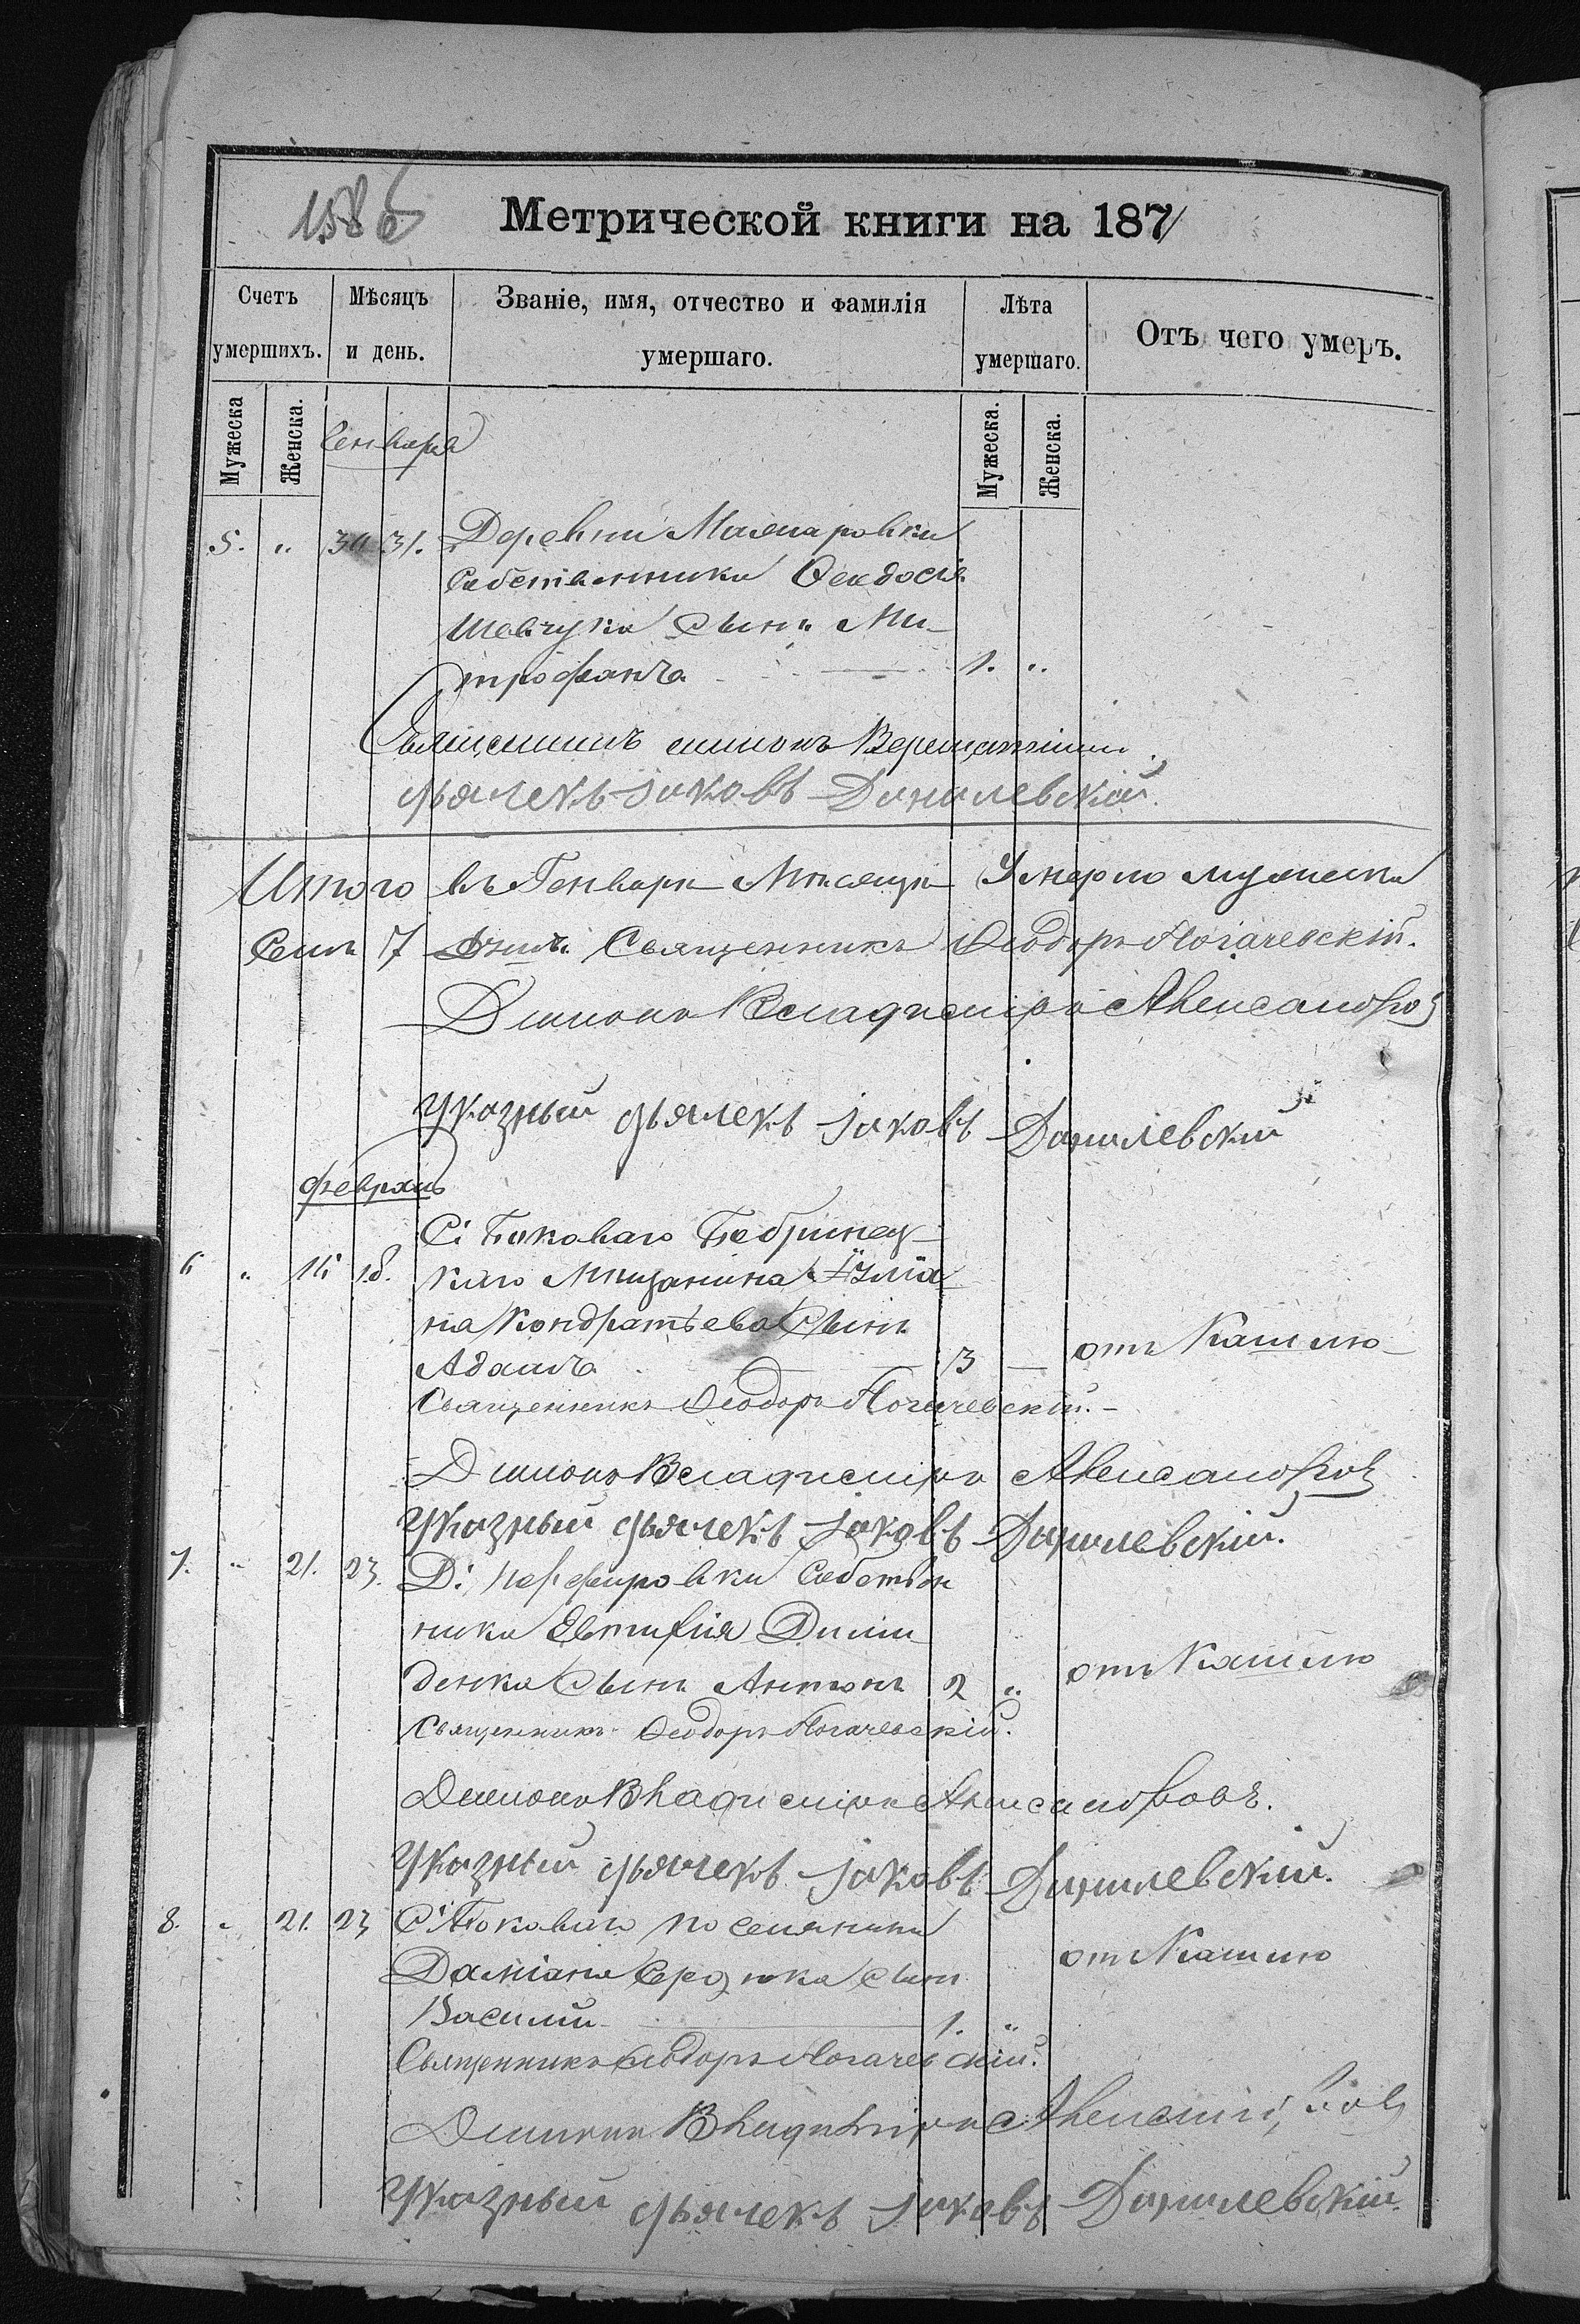 158б
Метрической книги на 1871
Счетъ умершихъ.
Мѣсяцъ и день.
Званіе, имя, отчество и фамилія умершаго.
Лѣта умершаго.
Отъ чего умеръ.
Мужеска
Женска.
Мужеска.
Женска.
Генваря
5. „ 30 31. Деревни
Собственника Ѳеодосія
Шевчука сынъ Ми-
трофанъ 1. „
Священникъ
дьячекъ Іаковъ Данилевскій.
Итого въ Генварѣ Мѣсяцѣ Умерло мужеска
Семь 7 душъ. Священникъ Ѳеодоръ Погачевскій.
Діаконъ Владиміръ Александров
Указный дьячекъ Іаковъ Данилевский
Февраль
С: Боковаго Бобринец-
6 „ 16 18. каго Мѣщанина
на Кондратьева Сынъ
Адамъ 3 — отъ Кашлю
Священникъ Ѳеодоръ Погачевскій.
Діаконъ Владиміръ Александров
Указный дьячекъ Іаковъ Данилевскій.
7. „ 21. 23. Д: Порфировки Собствен
ника Евтифія
денка Сынъ Антонъ 2 „ отъ Кашлю
Священникъ Ѳеодоръ Погачевскій.
Діаконъ Владиміръ Александровъ.
Указный дьячекъ Іаковъ Данилевский.
8. „ 21. 23 С: Боковаго поселянина
Даміана Сердюка сын отъ Кашлю
Василій 1. „
Священникъ Ѳеодоръ Погачевскій.
Діаконъ Владиміръ Александров
Указный дьячекъ Іаковъ Данилевский.